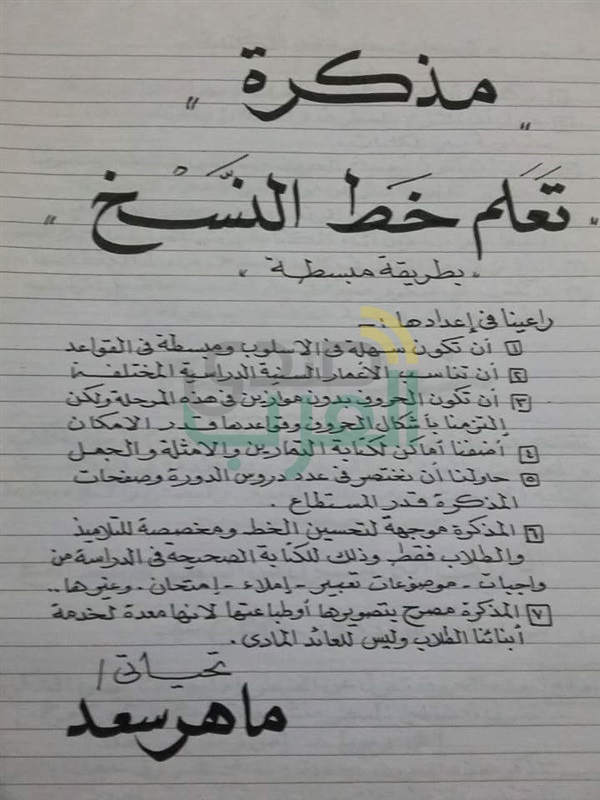 مذكرة
تعَلم خَط النسَّخ
بطريقة مبسطة
راعينا فى إعدادها :-
١ أن تكون سهلة فى الاسلوب ومبسطة فى القواعد
٢ أن تناسب الأعمار السنية الدراسية المختلفة
٣ أن تكون الحروف بدون موازين فى هذه المرحلة ولكن
إلتزمنا بأشكال الحروف وقواعدها قدر الامكان
٤ أضفنا أماكن لكتابة التمارين والأمثلة والجمل
٥ حاولنا أن نختصر فى عدد دروس الدورة وصفحات
المذكرة قدر المستطاع .
٦ المذكرة موجهة لتحسين الخط ومخصصة للتلاميذ
والطلاب فقط وذلك للكتابة الصحيحة فى الدراسة من
واجبات - موضوعات تعبير - إملاء - إمتحان . وغيرها ..
٧ المذكرة مصرح بتصويرها أوطباعتها لانها معدة لخدمة
أبنائنا الطلاب وليس للعائد المادى .
تحياتى /
ماهر سعد